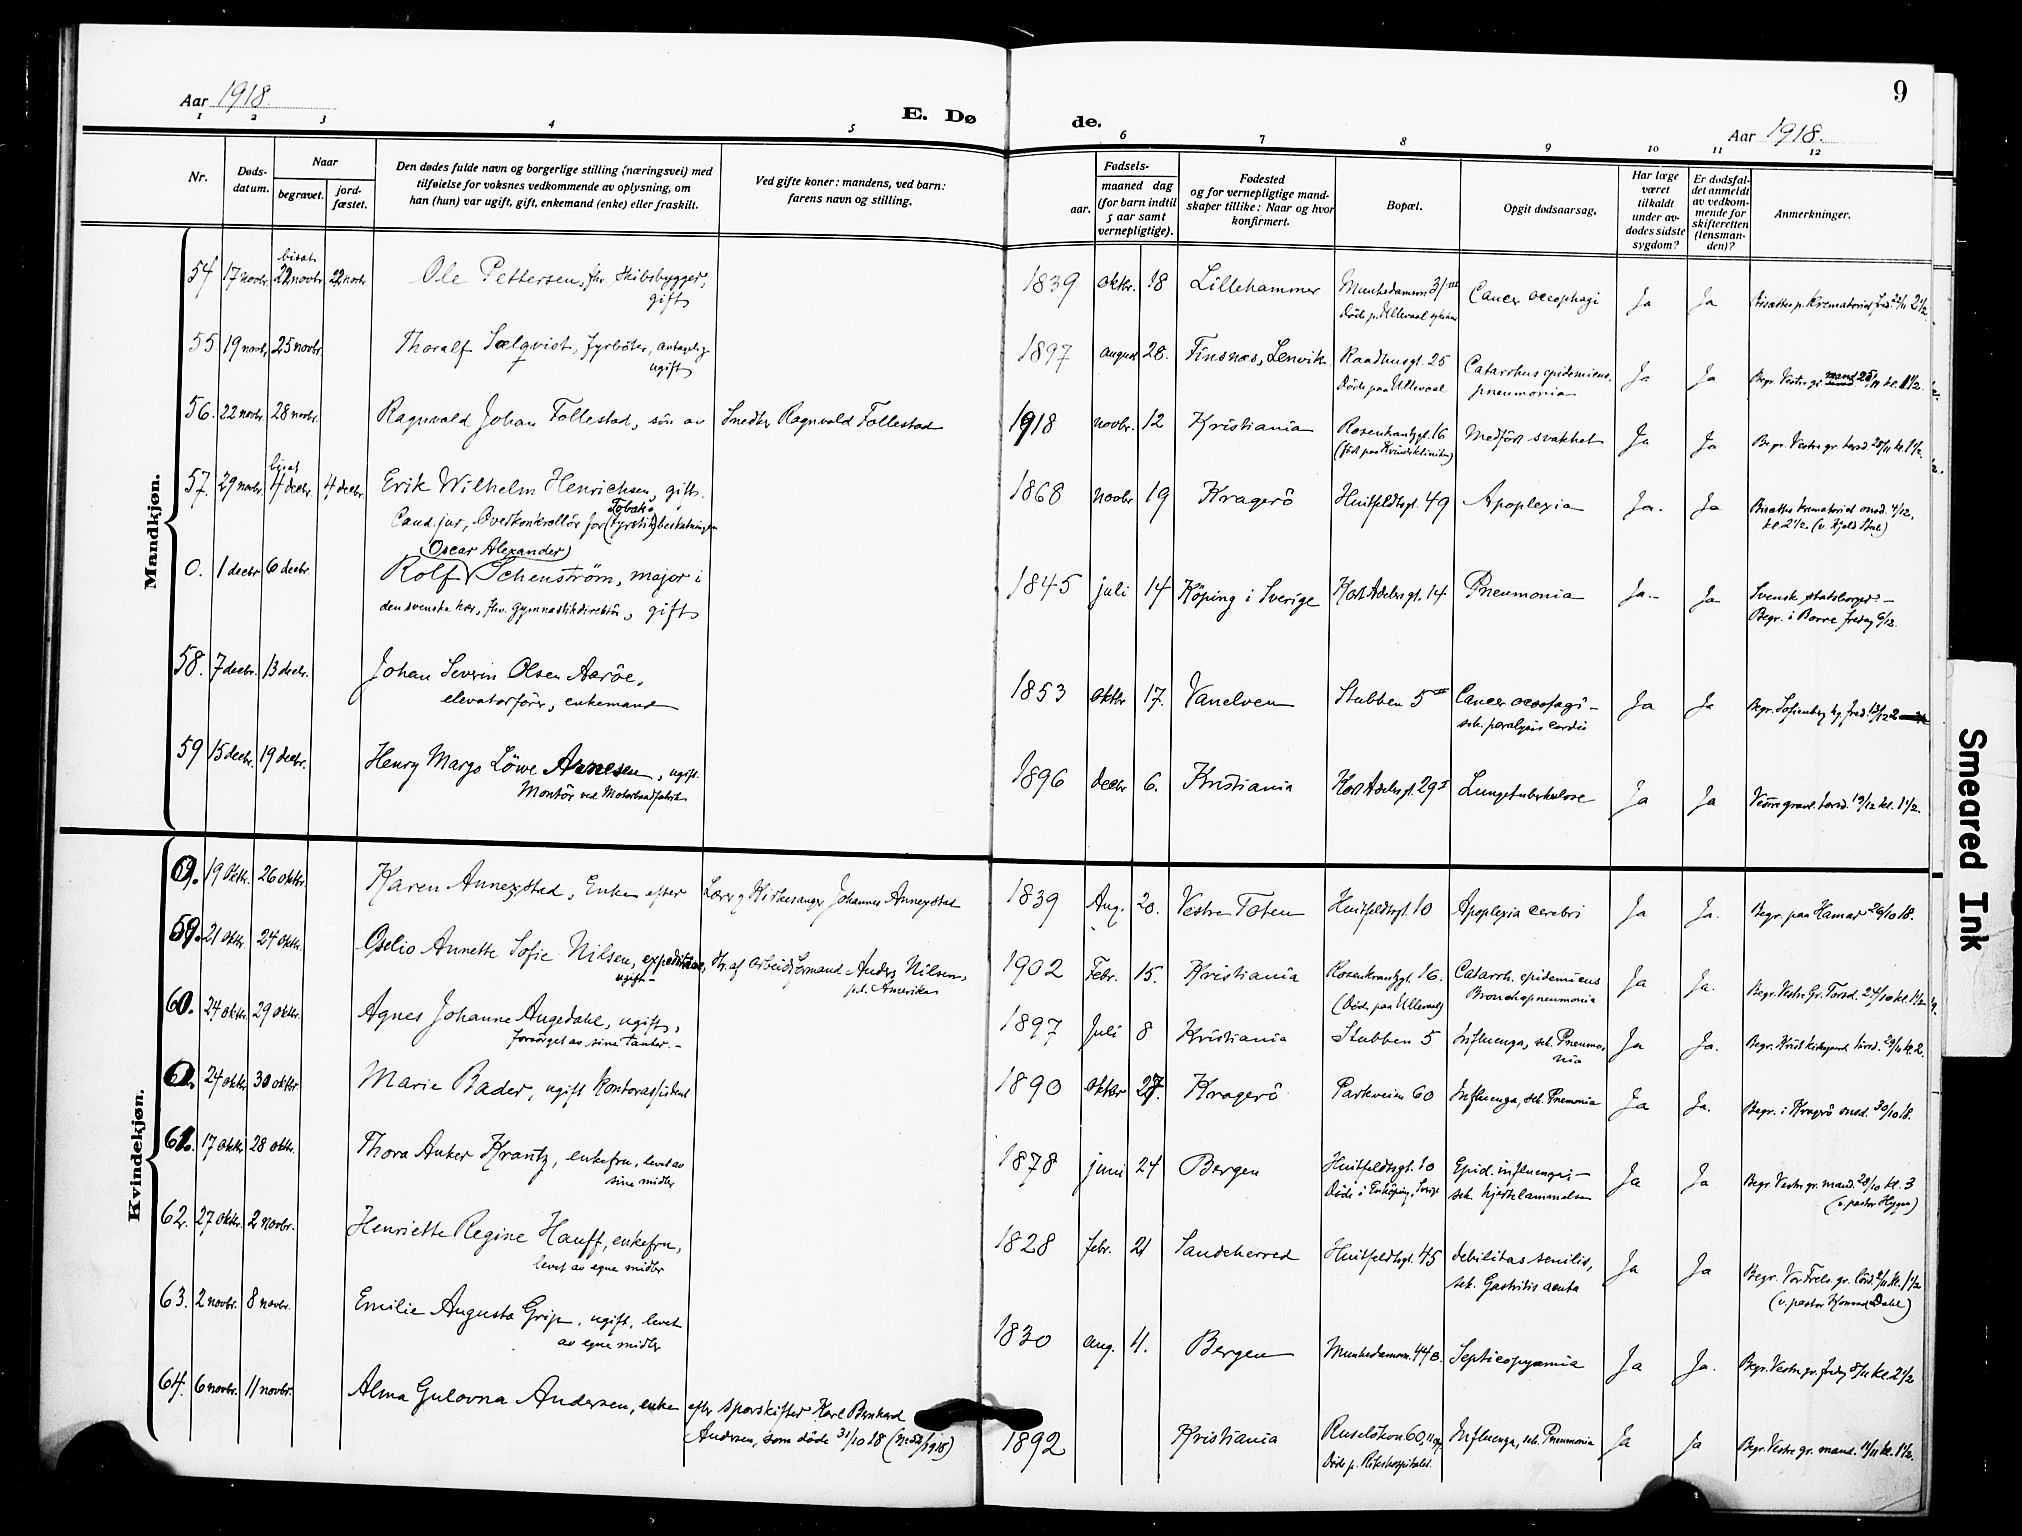 Aar 1918.
E. Døde.
9
Aar 1918.
1 2 3 4 5 6 7 8 9 10 11 12
Nr.
Døds-
datum.
Naar
begravet.
jord-
fæstet.
Den dødes fulde navn og borgerlige stilling (næringsvei) med
tilføielse for voksnes vedkommende av oplysning, om
han (hun) var ugift, gift, enkemand (enke) eller fraskilt.
Ved gifte koner: mandens, ved barn:
farens navn og stilling.
Fødsels-
aar.
maaned dag
(for barn indtil
5 aar samt
vernepligtige).
Fødested
og for vernepligtige mand-
skaper tillike: Naar og hvor
konfirmert.
Bopæl.
Opgit dødsaarsag.
Har læge
været
tilkaldt
under av-
dødes sidste
sygdom?
Er dødsfal-
det anmeldt
av vedkom-
mende for
skifteretten
(lensman-
den)?
Anmerkninger.
Mandkjøn.
bisat
54 17 novbr. 22 novbr. 22 novbr. Ole Pettersen, fhv. Skibsbygger, 1839 oktbr. 18 Lillehammer Munkedamsvn 31 Cancer oesophagi Ja Ja Bisættes p. Krematoriet fred. 22/11 2 1/2
gift Döde p. Ullevaal sykehus
55 19 novbr. 25 novbr. Thoralf Sælqvist, fyrböter, antagelig 1897 august 28. Finsnæs, Lenvik Raadhusgt. 25 Catarrhus epidemicus, Ja Ja Begr. Vestre gr. mand 25/11 kl. 1 1/2.
ugift Döde paa Ullevaal pneumonia
56. 22 novbr. 28 novbr. Ragnvald Johan Follestad, sön av Smedm. Ragnvald Follestad 1918 novbr. 12 Kristiania Rosenkrantzgt. 16 Medfödt svakhet Ja Ja Begr. Vestre gr. torsd. 28/11 kl. 1 1/2.
(född paa Kvindeklinikken)
bisat
57. 29 novbr. 4 decbr. 4 decbr. Erik Wilhelm Henrichsen, gift. 1868 novbr 19 Kragerö Huitfeldtsgt. 49 Apoplexia Ja. Ja Bisættes Krematoriet onsd. 4/12.
Cand. jur, Overkontrollör for (fyrstik) Tobaks beskatningen kl. 2 1/2. (v. Kjeld Stub)
(Oscar Alexander)
0. 1 decbr 6 decbr Rolf Schenström, major i 1845 juli 14 Köping i Sverige Kort Adelersgt. 14 Pneumonia Ja. Ja Svensk statsborger. -
den svenske hær, fhv. gymnastikdirektör, gift Begr. i Borre fredag 6/12.
58. 7 decbr. 13 decbr. Johan Severin Olsen Aaröe, 1853 oktbr 17. Vanelven Stubben 5 Cancer oesofagi - Ja Ja Begr. Sofienberg kg. fred. 13/12 2
elevatorförer, enkemand sek. paralysis cordis
59 15 decbr. 19 decbr. Henry Margo Löwe Arnesen, ugift. 1896 decbr 6. Kristiania Kort Adelersgt. 29 I Lungetuberkulose Ja Ja Vestre gravl. torsd. 19/12 kl. 1 1/2.
Montör ved Motorbaadfabrik
Kvindekjøn.
19 Oktbr. 26 oktbr. Karen Annexstad, Enke efter Lærer og Kirkesanger Johannes Annexstad 1839 Aug. 20. Vestre Toten Huitfeldtsgt. 10 Apoplexia cerebri Ja Ja. Begr. paa Hamar 26/10 18.
59. 21 oktbr. 24 oktbr. Oselio Annette Sofie Nilsen, expeditrice, dtr. af Arbeidsformand Anders Nilsen, 1902 Febr. 15. Kristiania Rosenkrantzgt. 16. Catarrh. epidemicus Ja Ja. Begr. Vestre Gr. Torsd. 24/10 kl. 1 1/2
ugift - p.t. Amerika (Döde paa Ulleval) Bronchopneumonia
60. 24 oktbr. 29 oktbr. Agnes Johanne Augedahl, ugift, 1897 Juli 8 Kristiania Stubben 5 Influenza, sek. Pneumo- Ja Ja. Begr. Krist kirkegaard tirsd. 29/10 kl. 2.
forsörget av sine tanter. - nia
24 oktbr 30 oktbr. Marie Bader, ugift kontorassistent 1890 oktbr 27. Kragerö Parkveien 60 Influenza, sek. Pnemonia Ja Ja. Begr. i Kragerö onsd. 30/10 18.
61. 17 oktbr 28 oktbr. Thora Anker Krantz, enkefru, levet av 1878 juni 24 Bergen Huitfeldtsgt. 10 Epid. influenza; - Ja Ja Begr. Vestre gr. mand. 28/10 kl. 3
sine midler Döde i Enköping, Sverige sek. hjertelammelse (v. pastor Hygen)
62. 27 oktbr. 2 novbr. Henriette Regine Hauff, enkefru, 1828 febr. 21 Sandeherred Huitfeldtsgt. 45 debilitas senilis, Ja Ja Begr. Vor Frels. gr. lörd. 2/11 kl. 1 1/2
levet av egne midler sek. Gastritis acuta (v. pastor Konrad Dahl)
63. 2 novbr. 8 novbr. Emilie Augusta Grip, ugift, levet 1830 aug. 4. Bergen Munkedamsvn. 44 B. Septicopyæmia Ja Ja. Begr. Vestre gr. fredag 8/11 kl. 2 1/2
av egne midler
64. 6 novbr. 11 novbr. Alma Gulovna Andersen, enke efter sporskifter Karl Bernhard 1892 Kristiania Ruselökvn 60, Influenza, sek. Pneumonia Ja Ja Begr. Vestre gr. mand. 11/11 kl. 1 1/2.
Andersen, som döde 31/10 18 (No 52/1918) Döde p. Rikshospitalet.
Smeared Ink